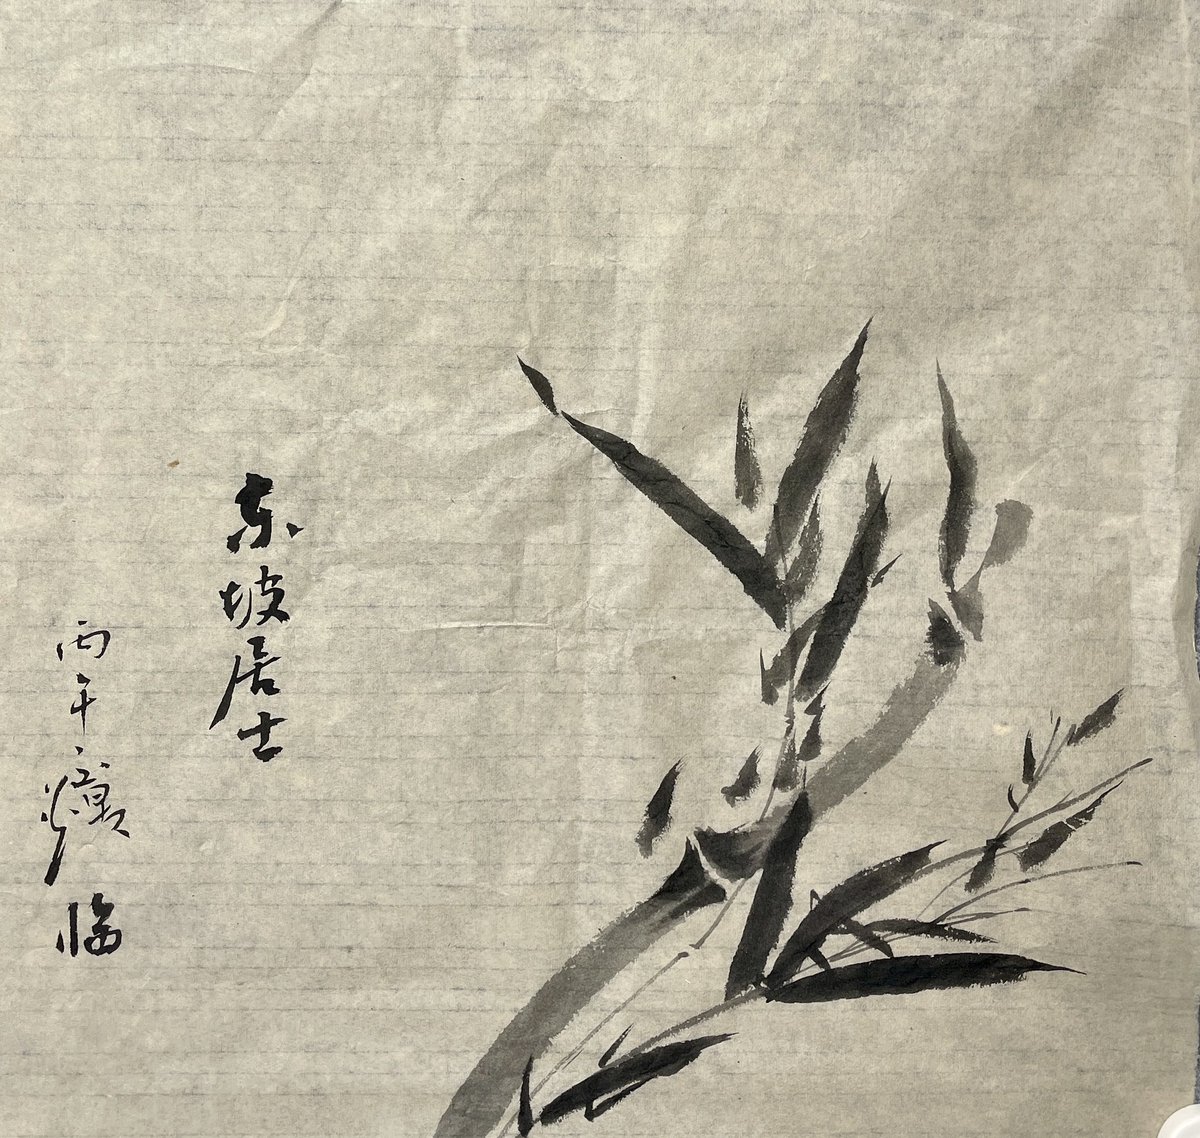 东坡居士
丙午
临